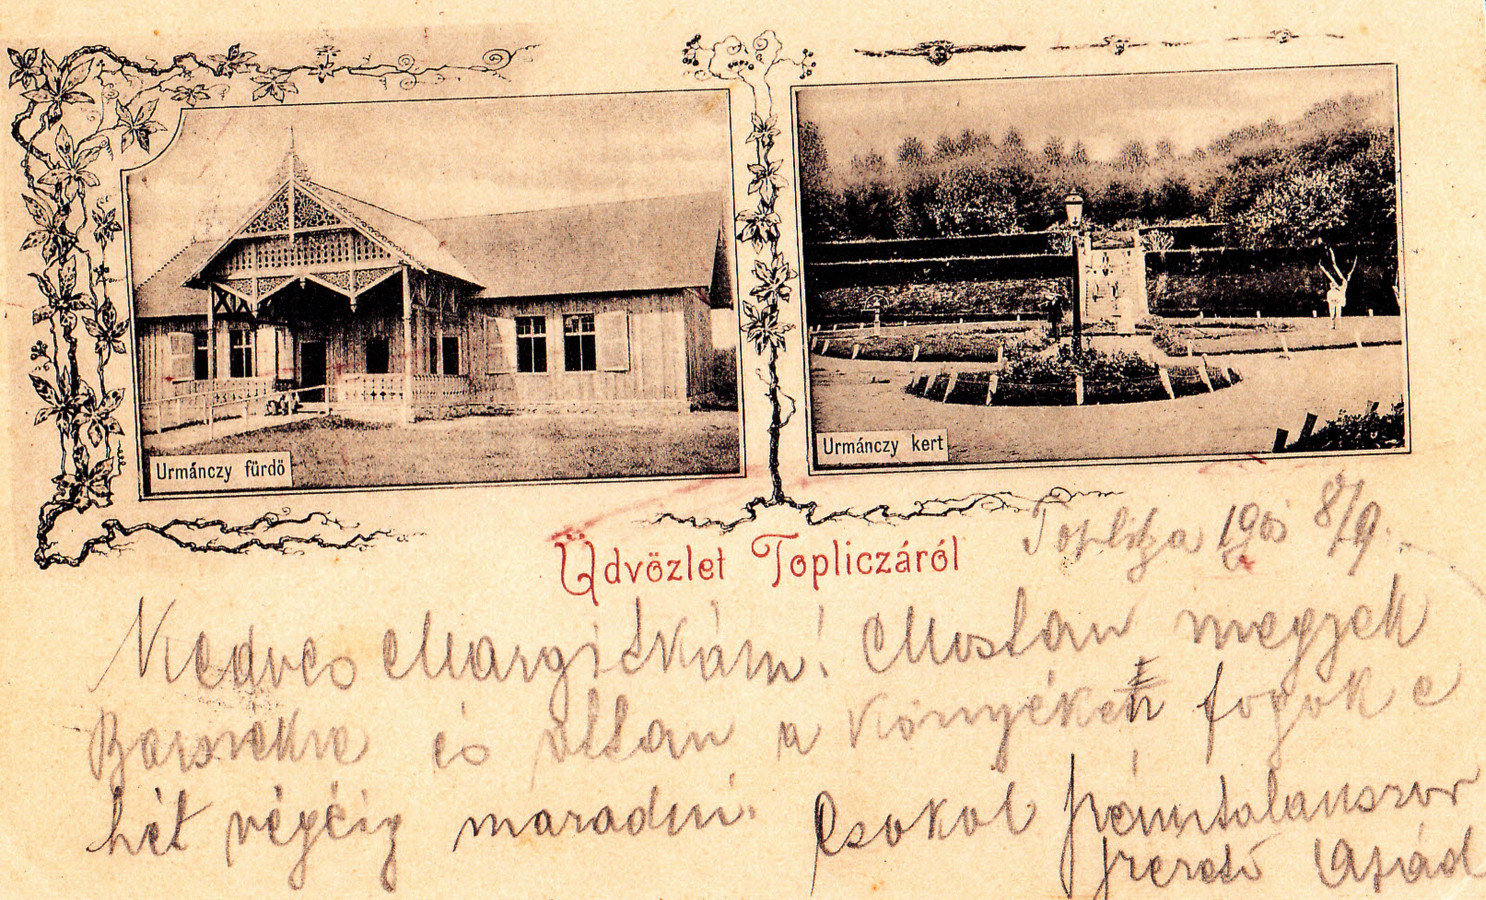 Urmánczy fürdö
Urmánczy kert
Üdvözlet Topliczáról
Toplitza 190 8/9.
Kedves Margitkám! Mostan megyek
és attan a környéken fogok e
hét végéig maradni. Csokol számtalanszor
szerető Apád